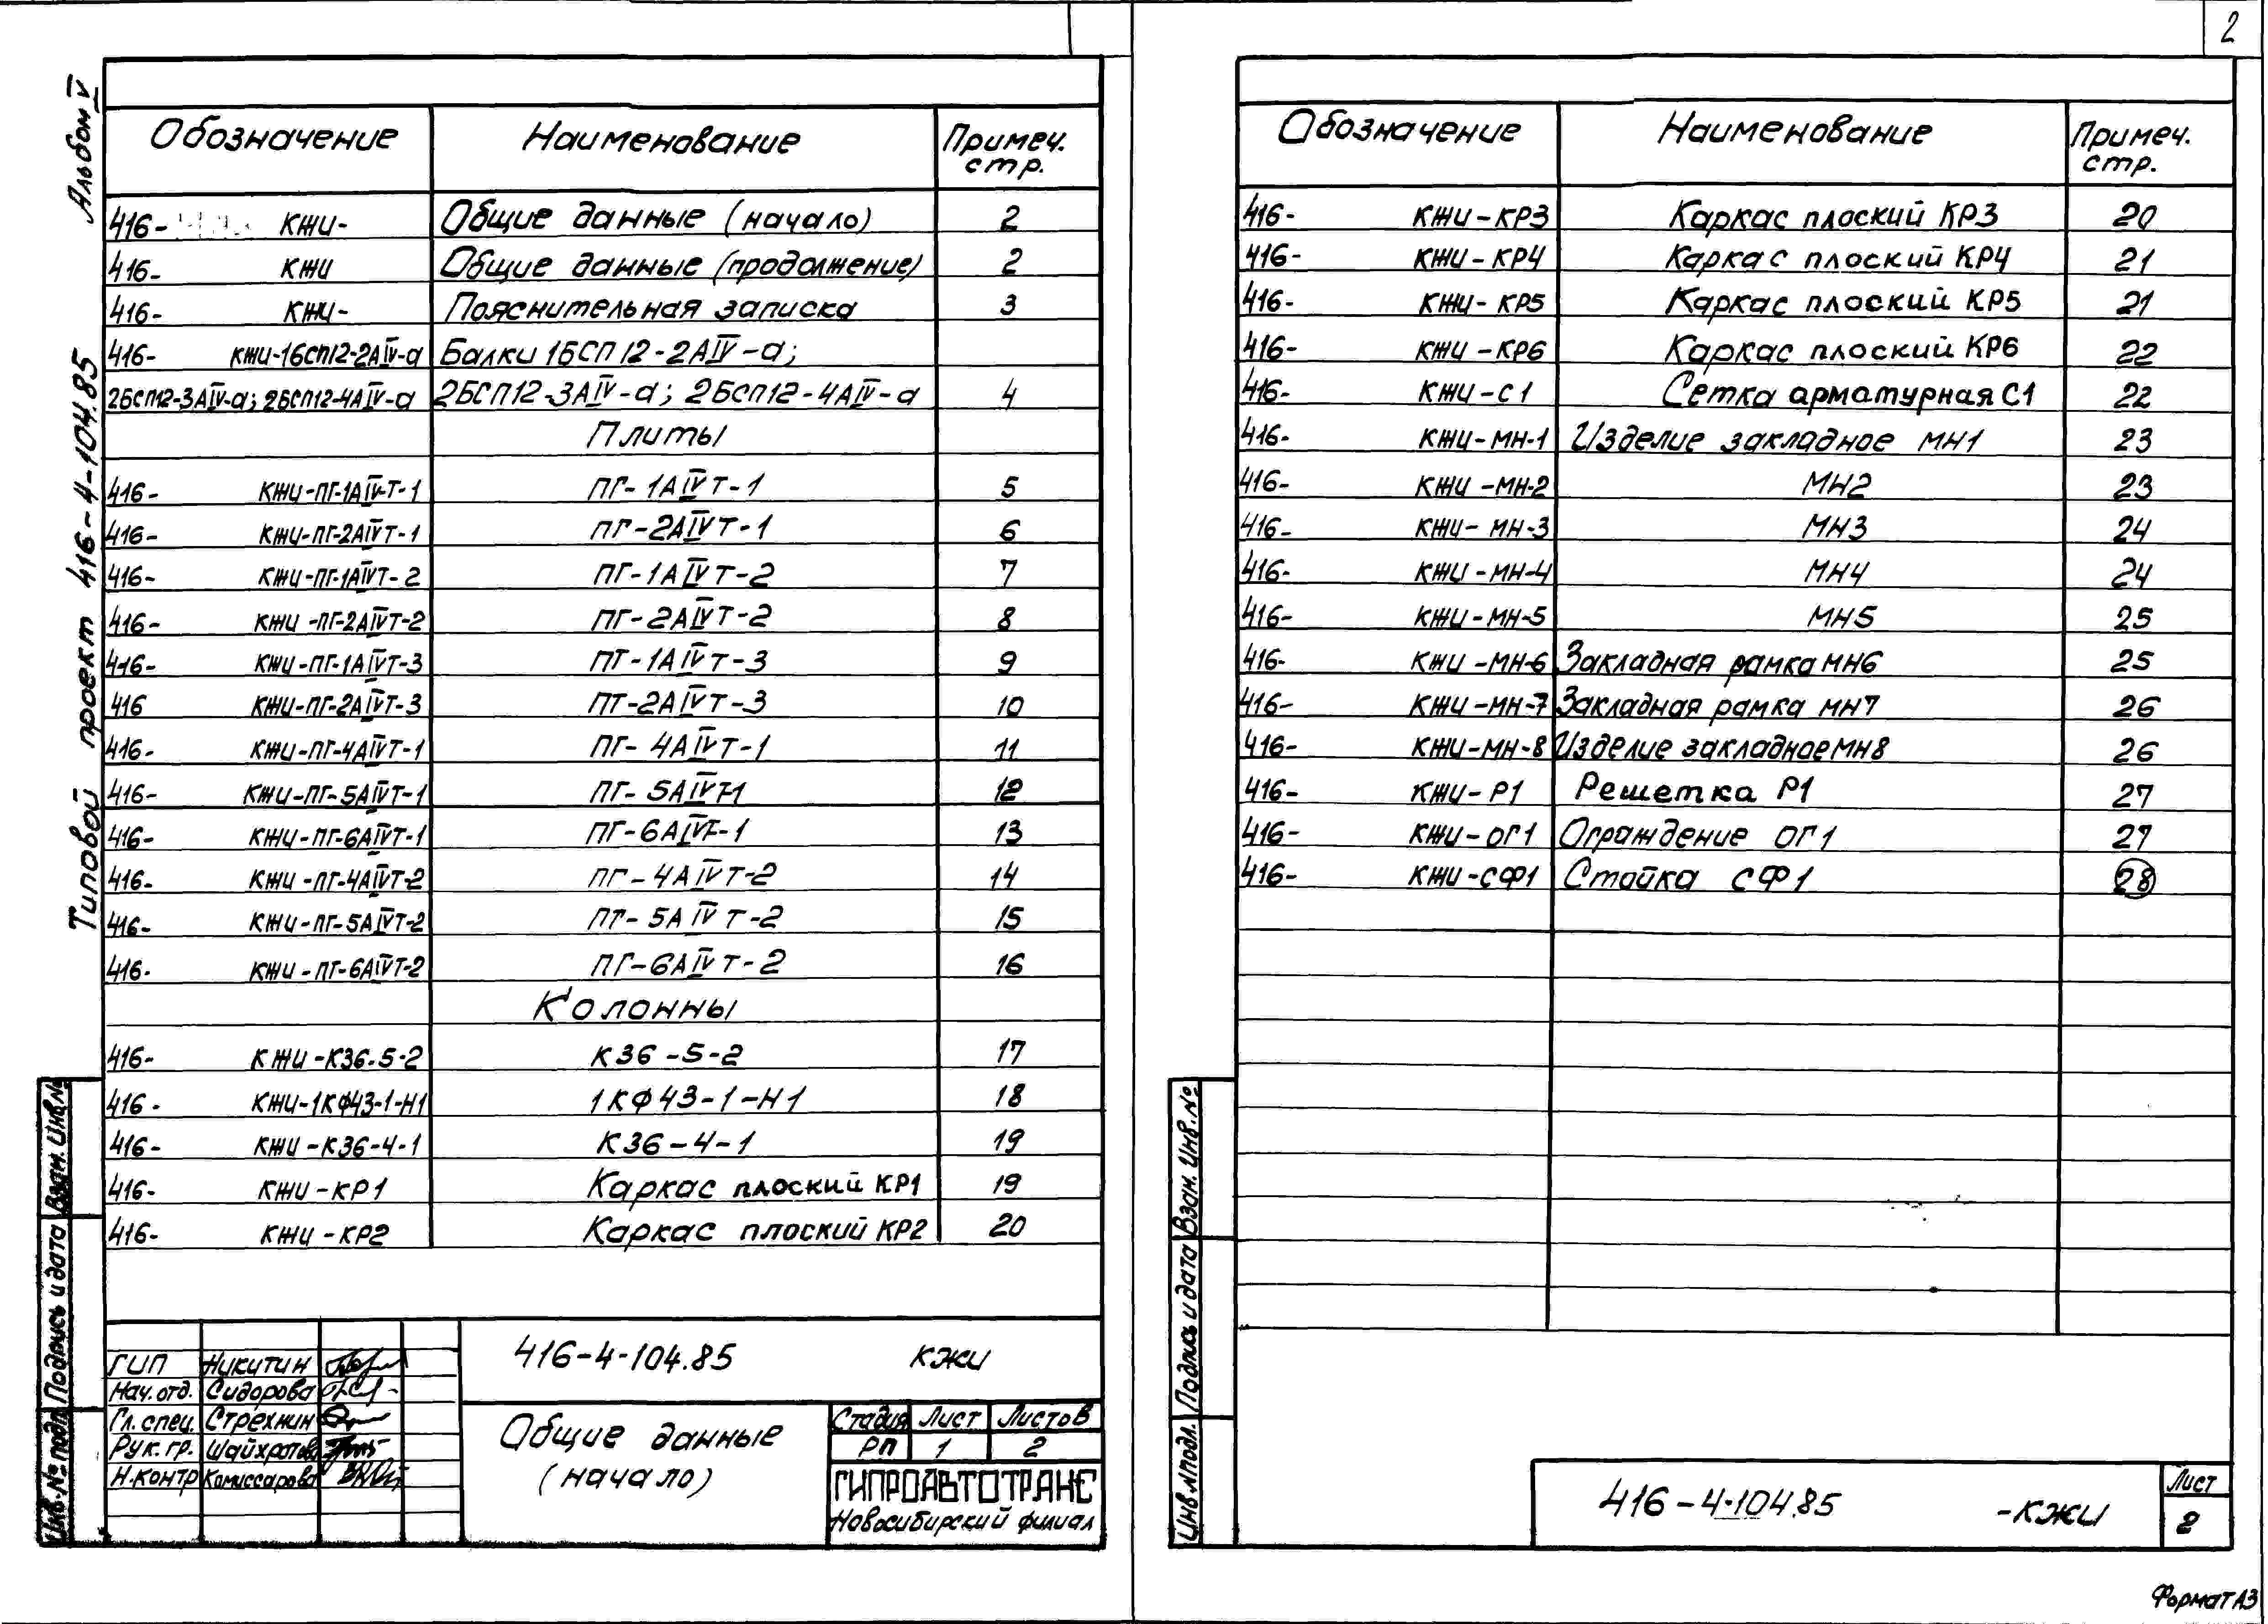 2
Альбом V
Типовой проект 416-4-104.85
Обозначение Наименование Примеч. стр.
416- КЖИ- Общие данные (начало) 2
416- КЖИ Общие данные (продолжение) 2
416- КЖИ- Пояснительная записка 3
416- КЖИ-1БСП12-2АIV-а Балки 1БСП12-2АIV-а;
2БСП12-3АIV-а; 2БСП12-4АIV-а 2БСП12-3АIV-а; 2БСП12-4АIV-а 4
Плиты
416- КЖИ-ПГ-1АIVТ-1 ПГ-1АIVТ-1 5
416- КЖИ-ПГ-2АIVТ-1 ПГ-2АIVТ-1 6
416- КЖИ-ПГ-1АIVТ-2 ПГ-1АIVТ-2 7
416- КЖИ-ПГ-2АIVТ-2 ПГ-2АIVТ-2 8
416- КЖИ-ПГ-1АIVТ-3 ПТ-1АIVТ-3 9
416 КЖИ-ПГ-2АIVТ-3 ПТ-2АIVТ-3 10
416- КЖИ-ПГ-4АIVТ-1 ПГ-4АIVТ-1 11
416- КЖИ-ПГ-5АIVТ-1 ПГ-5АIVТ-1 12
416- КЖИ-ПГ-6АIVТ-1 ПГ-6АIVТ-1 13
416- КЖИ-ПГ-4АIVТ-2 ПГ-4АIVТ-2 14
416- КЖИ-ПГ-5АIVТ-2 ПТ-5АIVТ-2 15
416- КЖИ-ПГ-6АIVТ-2 ПГ-6АIVТ-2 16
Колонны
416- КЖИ-К36-5-2 К36-5-2 17
416- КЖИ-1КФ43-1-Н1 1КФ43-1-Н1 18
416- КЖИ-К36-4-1 К36-4-1 19
416- КЖИ-КР1 Каркас плоский КР1 19
416- КЖИ-КР2 Каркас плоский КР2 20
Инв.№ подл. Подпись и дата Взам. инв.№
ГИП Никитин
Нач.отд. Сидорова
Гл.спец. Стрехнин
Рук.гр. Шайхратова
Н.контр Комиссарова
416-4-104.85 КЖИ
Общие данные
(начало)
Стадия Лист Листов
РП 1 2
ГИПРОАВТОТРАНС
Новосибирский филиал
Обозначение Наименование Примеч. стр.
416- КЖИ-КР3 Каркас плоский КР3 20
416- КЖИ-КР4 Каркас плоский КР4 21
416- КЖИ-КР5 Каркас плоский КР5 21
416- КЖИ-КР6 Каркас плоский КР6 22
416- КЖИ-С1 Сетка арматурная С1 22
416- КЖИ-МН-1 Изделие закладное МН1 23
416- КЖИ-МН-2 МН2 23
416- КЖИ-МН-3 МН3 24
416- КЖИ-МН-4 МН4 24
416- КЖИ-МН-5 МН5 25
416- КЖИ-МН-6 Закладная рамка МН6 25
416- КЖИ-МН-7 Закладная рамка МН7 26
416- КЖИ-МН-8 Изделие закладное МН8 26
416- КЖИ-Р1 Решетка Р1 27
416- КЖИ-ОГ1 Ограждение ОГ1 27
416- КЖИ-СФ1 Стойка СФ1 28
Инв.№подл. Подпись и дата Взам. инв.№
416-4-104.85 -КЖИ
Лист
2
Формат А3